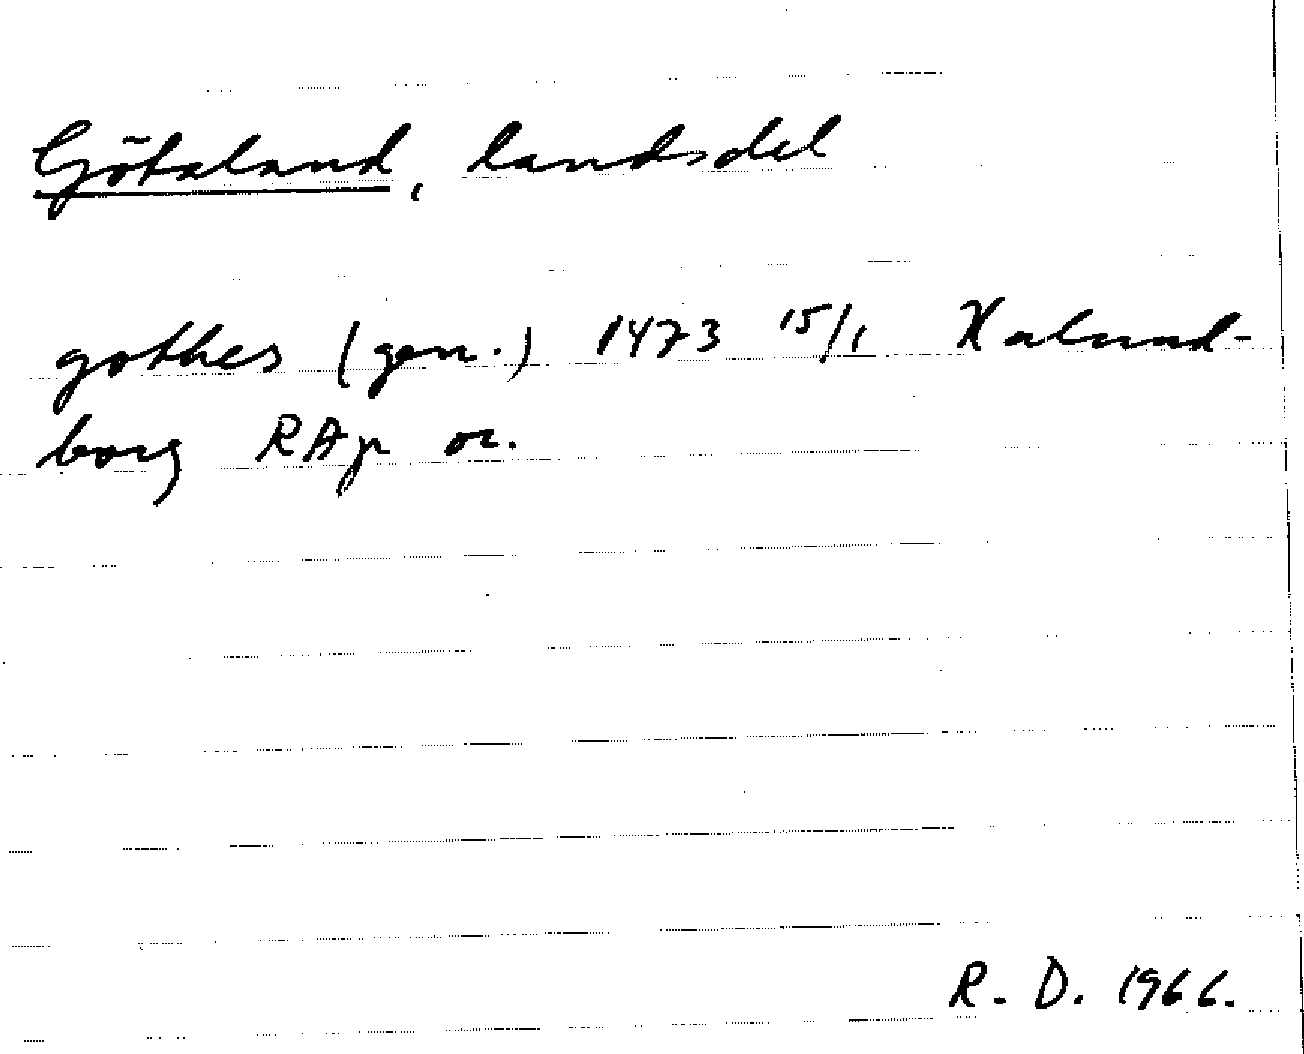 Götaland, landsdel
gothes (gen.) 1473 15/1 Kalund-
borg RAp or.
R. D. 1966.